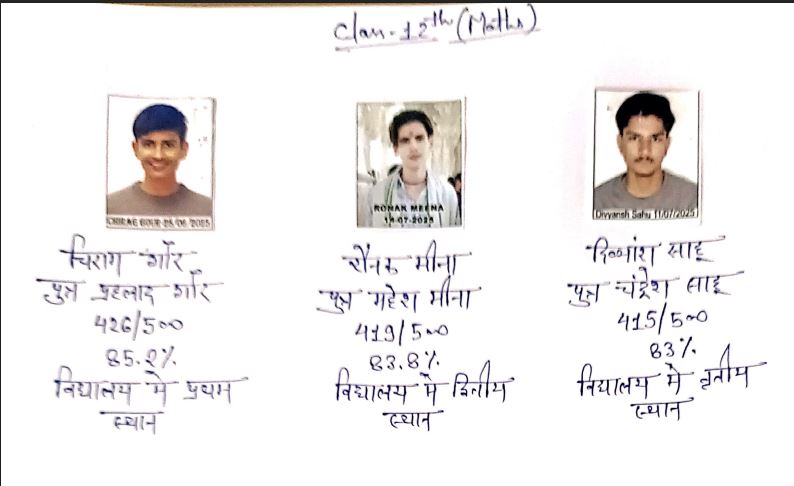 Class-12th (Maths)
CHIRAG GOUR-25/06/2025
RONAK MEENA
14-07-2025
Divyansh Sahu 11/07/2025
चिराग गौर
पुत्र प्रहलाद गौर
426/500
85.2%
विद्यालय मे प्रथम
स्थान
रौनक मीना
पुत्र महेश मीना
419/500
83.8%
विद्यालय मे द्वितीय
स्थान
दिव्यांश साहू
पुत्र चंद्रेश साहू
415/500
83%
विद्यालय मे तृतीय
स्थान